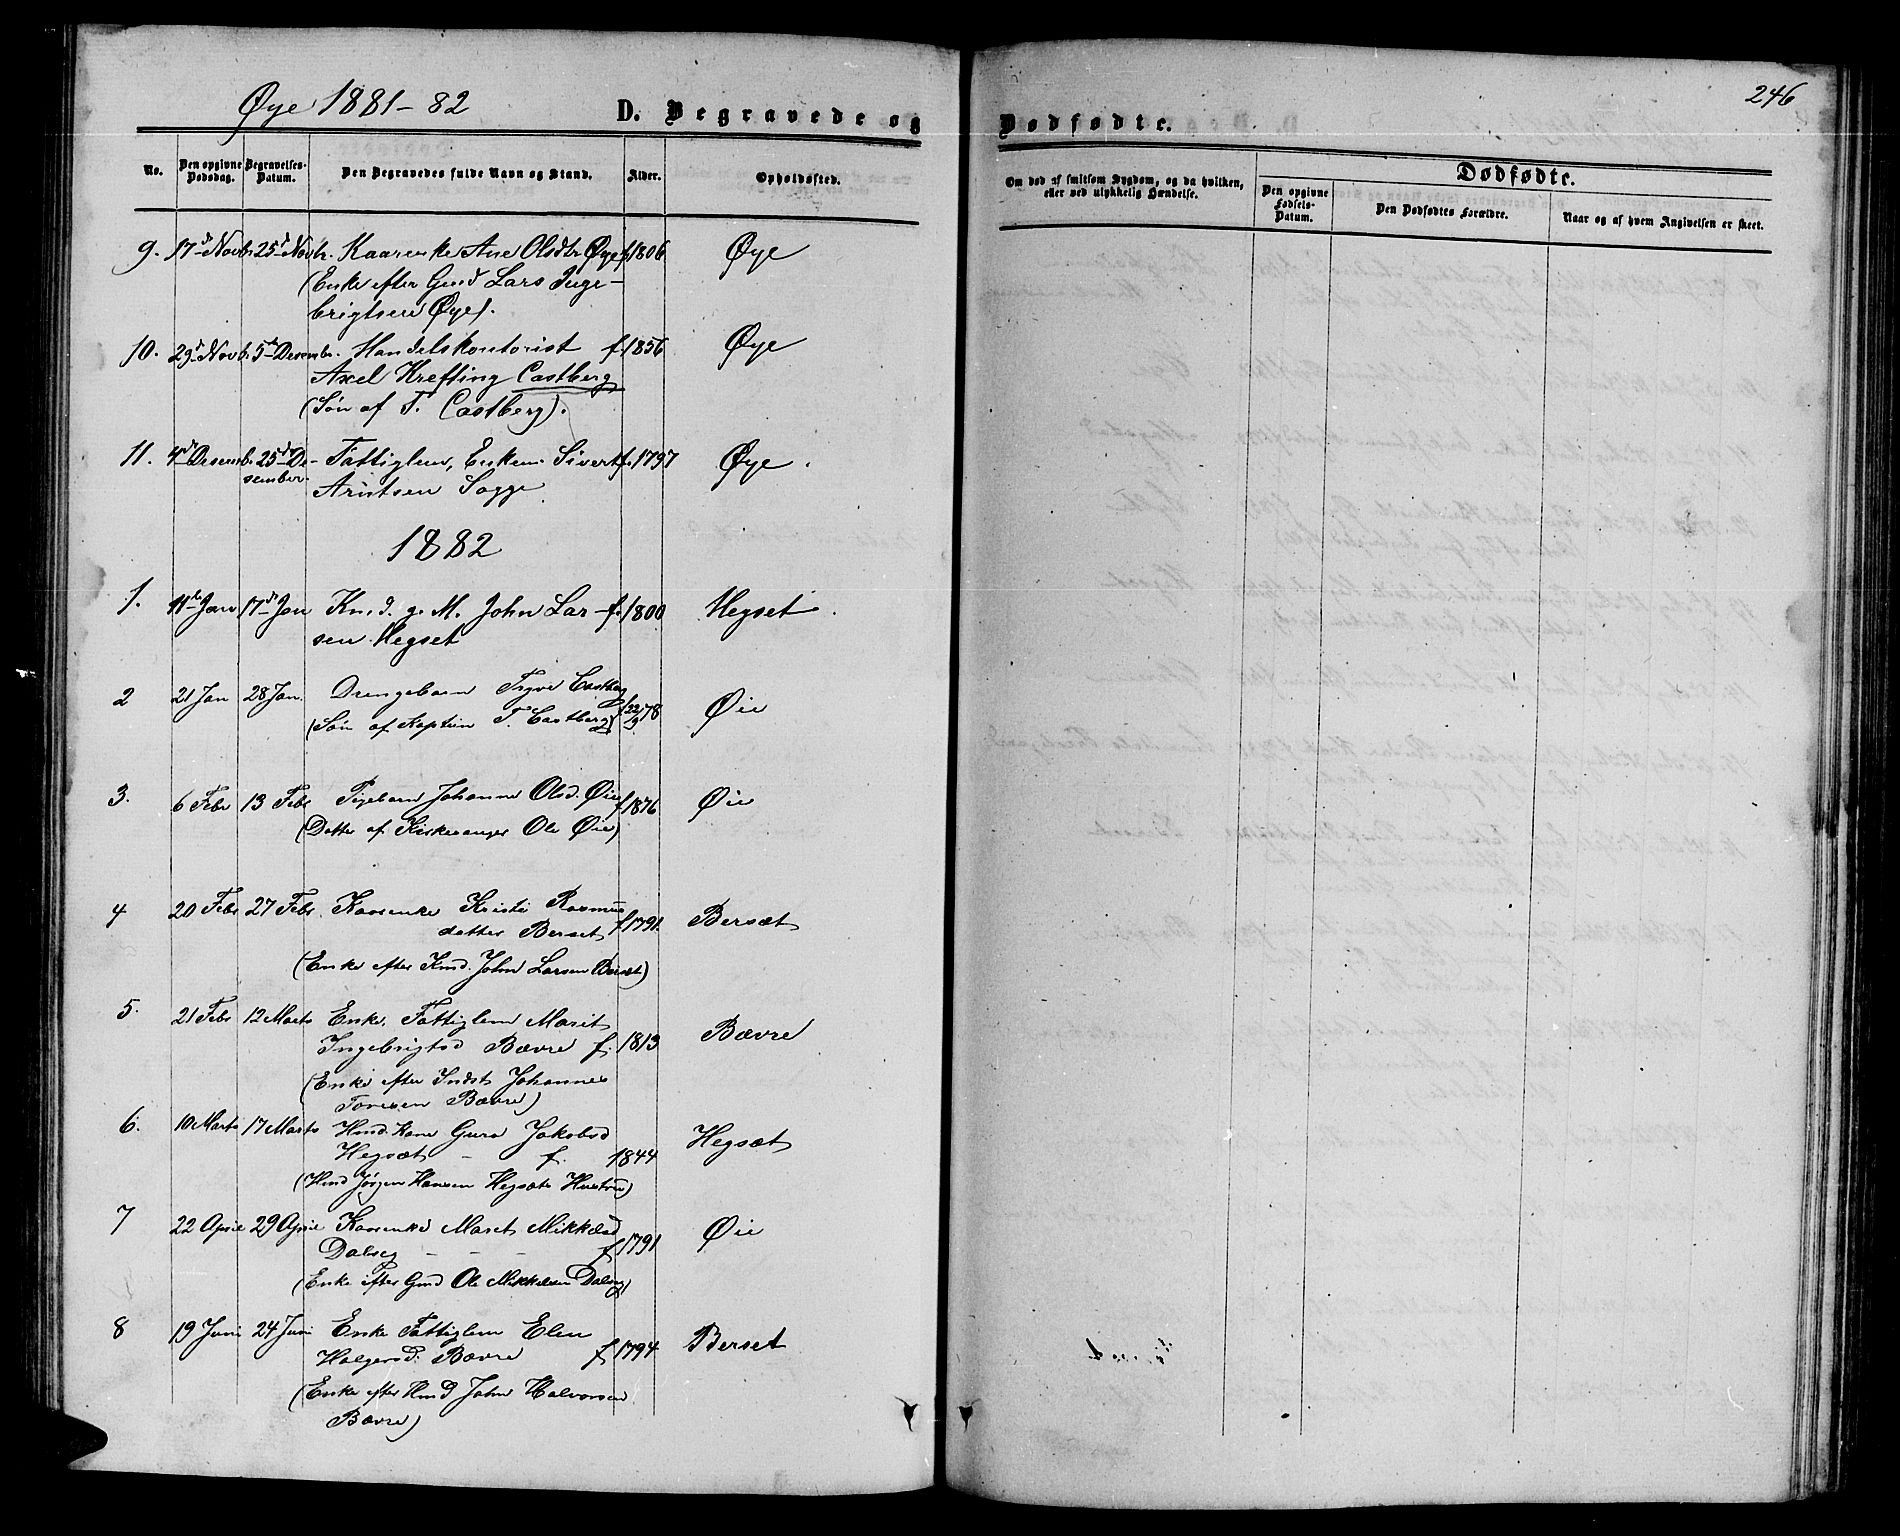 Øye 1881-82
D. Begravede og
No.
Den opgivne Dødsdag.
Begravelses-Datum.
Den Begravedes fulde Navn og Stand.
Alder.
Opholdssted.
9. 17d Novbr 25d Novbr. Kaarenke Ane Olsdtr Øye f. 1806 Øye
(Enke efter Gmd Lars Inge-
brigtsen Øye).
10. 29d Novb. 5d Desembr. Handelskontorist f. 1856 Øye
Axel Krefting Castberg
(Søn af T. Castberg).
11. 4d Desemb. 25d De- Fattiglem, Enkem. Sivert f. 1797 Øye.
sember. Arntsen Sogge
1882
1. 11d Jan 17d Jan Kn.d. g. M. John Lar- f. 1800 Hegset.
sen Hegset
2 21 Jan 28 Jan. Drengebarn Trygve Castberg
(Søn af Kaptein T. Castberg) f 22/9 78 Øie
3. 6 Febr 13 Febr Pigebarn Johanne Olsd. Øie f 1876 Øie
(Datter af Kirkesanger Ole Øie)
4 20 Febr 27 Febr. Kaarenke Kristi Rasmus
datter Berset f 1791. Bersæt
(Enke efter Kmd. John Larsen Berset)
5. 21 Febr 12 Marts Enke, Fattiglem Marit
Ingebrigtsd Bævre f. 1813 Bævre
(Enke efter Indst Johannes
Toresen Bævre)
6. 10 Marts 17 Marts Hmd. Kone Guro Jakobsd
Hegsæt - f. 1844 Hegsæt
(Hmd Jørgen Hansen Hegsæts Hustru)
7 22 April 29 April Kaarenke Maret Mikkelsd
Dalseg - - - f 1791 Øie
(Enke efter Gmd Ole Mikkelsen Dalseg)
8 19 Juni 24 Juni Enke Fattiglem Elen
Holgersd. Bævre f 1794 Berset
(Enke efter Hmd John Halvorsen
Bævre)
246
Dødfødte.
Om død af smitsom Sygdom, og da hvilken,
eller ved ulykkelig Hændelse.
Dødfødte.
Den opgivne Fødsels-Datum.
Den Dødfødtes Forældre.
Naar og af hvem Angivelsen er skeet.